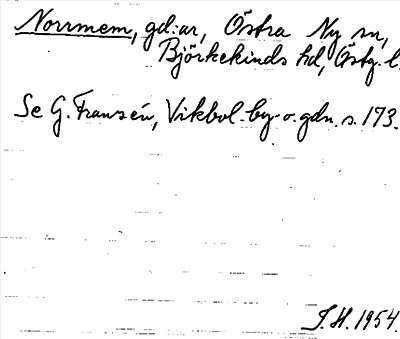 Norrmem, gd:ar, Östra Ny sn,
Björkekinds hd, Östg. l.
Se G. Franzén, Vikbol. by- o. gdn. s. 173.
I.H. 1954.